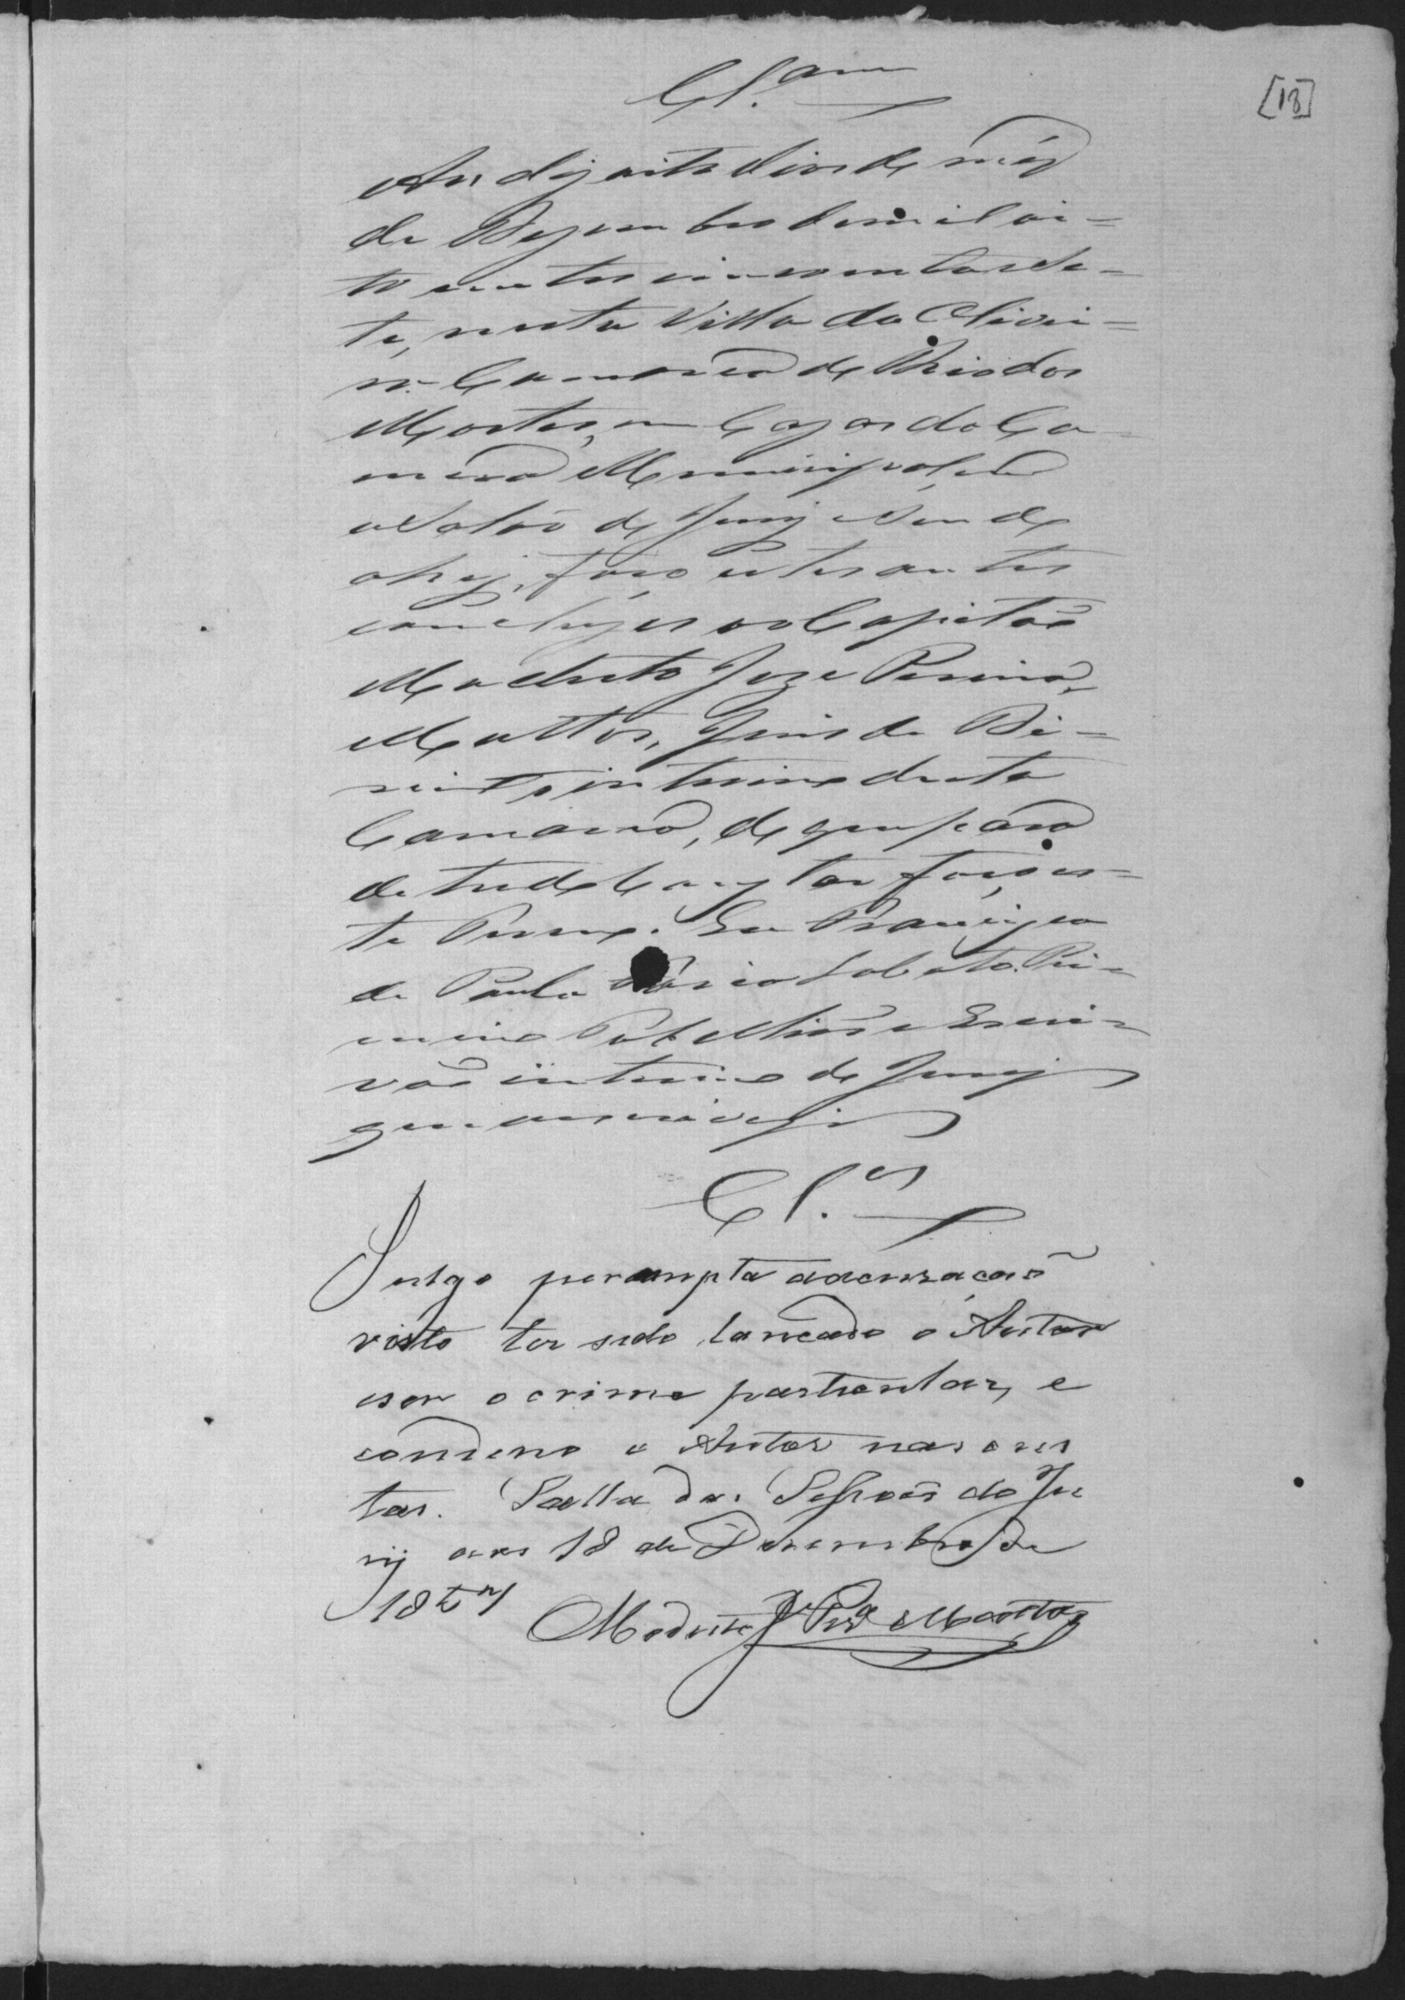 Cl.am
[18]
Aos dizoito dias do mez
de Dezembro de mil oi=
to centos cincoenta e se=
te, nesta Villa da Olivei=
ra Comarca do Rio das
Mortes, em Cazas da Ca=
mara Municipal, e
a Salão do Jury onde
ahi, faço estes autos
conclusos ao Capitão
Modesto Joze Pereira
Mattos, Juis de Di=
reito, interino desta
Comarca, de que para
de tudo constar faço es=
te termo. Eu Francisco
de Paula Lobato Pri=
meiro Tabelliaõ e Escri=
vaõ interino do Jury
que o escrevi
Cl.os
Julgo perempta a acuzacaõ
visto ter sido lancado o Autor
ser o crime particular, e
condeno o Autor nas cus
tas. Salla das Sessoẽs do Ju
ry aos 18 de Dezembro de
1857
Modesto Je Perª Mattos